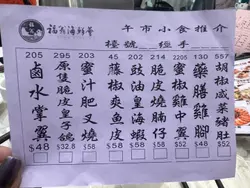 福苑海鮮酒家
午市小食推介
檯號 經手
205 鹵水掌翼 $48
295 原隻脆皮皇子鴿 $32.8
203 蜜汁肥叉燒 $58
45 藤椒爽魚皮 $52
202 豉油皇海蝦 $58
214 脆皮燒腩仔 $58
2205 蜜椒雞中翼 $52
130 藥膳雞腳 $48
557 胡椒咸菜猪肚 $52